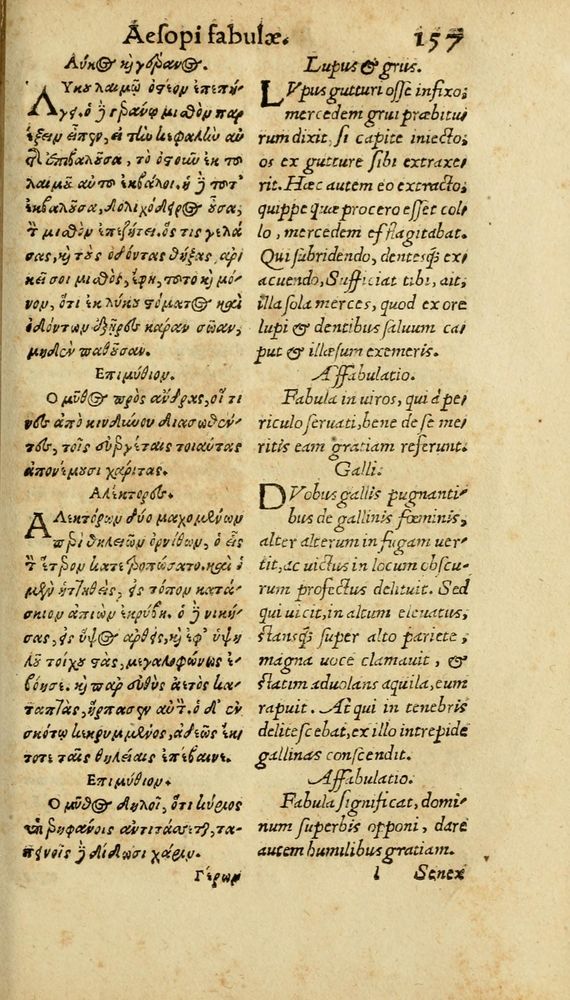 Aesopi fabulæ. 157
Λύκος καὶ γέρανος.
Λύκου λαιμῷ ὀστέον ἐπεπή-
γει. ὁ δὲ γεράνῳ μισθὸν παρ
έξειν εἶπεν, εἰ τὴν κεφαλὴν αὐ
τῆς ἐπιβαλοῦσα, τὸ ὀστοῦν ἐκ τοῦ
λαιμοῦ αὐτοῦ ἐκβάλοι. ἡ δὲ τοῦτ'
ἐκβαλοῦσα, δολιχόδειρος οὖσα,
τὸν μισθὸν ἐπεζήτει. ὅς τις γελά
σας, καὶ τοὺς ὀδόντας θήξας, ἀρ
κεῖ σοι μισθὸς, ἔφη, τοῦτο καὶ μό-
νον, ὅτι ἐκ λύκου στόματος καὶ
ὀδόντων ἐξῆρες κάραν σῶαν,
μηδὲν παθοῦσαν.
Επιμύθιον.
Ο μῦθος πρὸς ἄνδρας, οἵ τι
νες ἀπὸ κινδύνου διασωθέν-
τες, τοῖς εὐεργέταις τοιαύτας
ἀπονέμουσι χάριτας.
Αλέκτορες.
Αλεκτόρων δύο μαχομένων
περὶ θηλειῶν ὀρνίθων, ὁ εἷς
τὸν ἕτερον κατετροπώσατο. καὶ ὁ
μὲν ἡττηθεὶς, εἰς τόπον κατά-
σκιον ἀπιὼν ἐκρύβη. ὁ δὲ νική-
σας, εἰς ὕψος ἀρθεὶς, καὶ ἐφ' ὑψη
λοῦ τοίχου στὰς, μεγαλοφώνως ἐ-
βόησε. καὶ παρ' εὐθὺς ἀετὸς κα-
ταπτὰς, ἥρπασεν αὐτόν. ὁ δ' ἐν
σκότῳ κεκρυμμένος, ἀδεῶς ἔκ
τοτε ταῖς θηλείαις ἐπέβαινε.
Επιμύθιον.
Ο μῦθος δηλοῖ, ὅτι κύριος
ὑπερηφάνοις ἀντιτάσσεται, τα-
πεινοῖς δὲ δίδωσι χάριν.
Γέρων
Lupus & grus.
LVpus gutturi osse infixo;
mercedem grui præbitu
rum dixit, si capite iniecto;
os ex gutture sibi extraxe
rit. Hæc autem eo extracto;
quippe quæ procero esset col
lo, mercedem efflagitabat.
Qui subridendo, dentesq; ex
acuendo, Sufficiat tibi, ait;
illa sola merces, quod ex ore
lupi & dentibus saluum ca
put & illæsum exemeris.
Affabulatio.
Fabula in uiros, qui à pe
riculo seruati, bene de se me
ritis eam gratiam referunt.
Galli.
DVobus gallis pugnanti-
bus de gallinis fœminis,
alter alterum in fugam uer
tit, ac uictus in locum obscu-
rum profectus delituit. Sed
qui uicit, in altum eleuatus,
stansq; super alto pariete,
magna uoce clamauit, &
statim aduolans aquila, eum
rapuit. At qui in tenebris
delitescebat, ex illo intrepide
gallinas conscendit.
Affabulatio.
Fabula significat, domi-
num superbis opponi, dare
autem humilibus gratiam.
l Senex